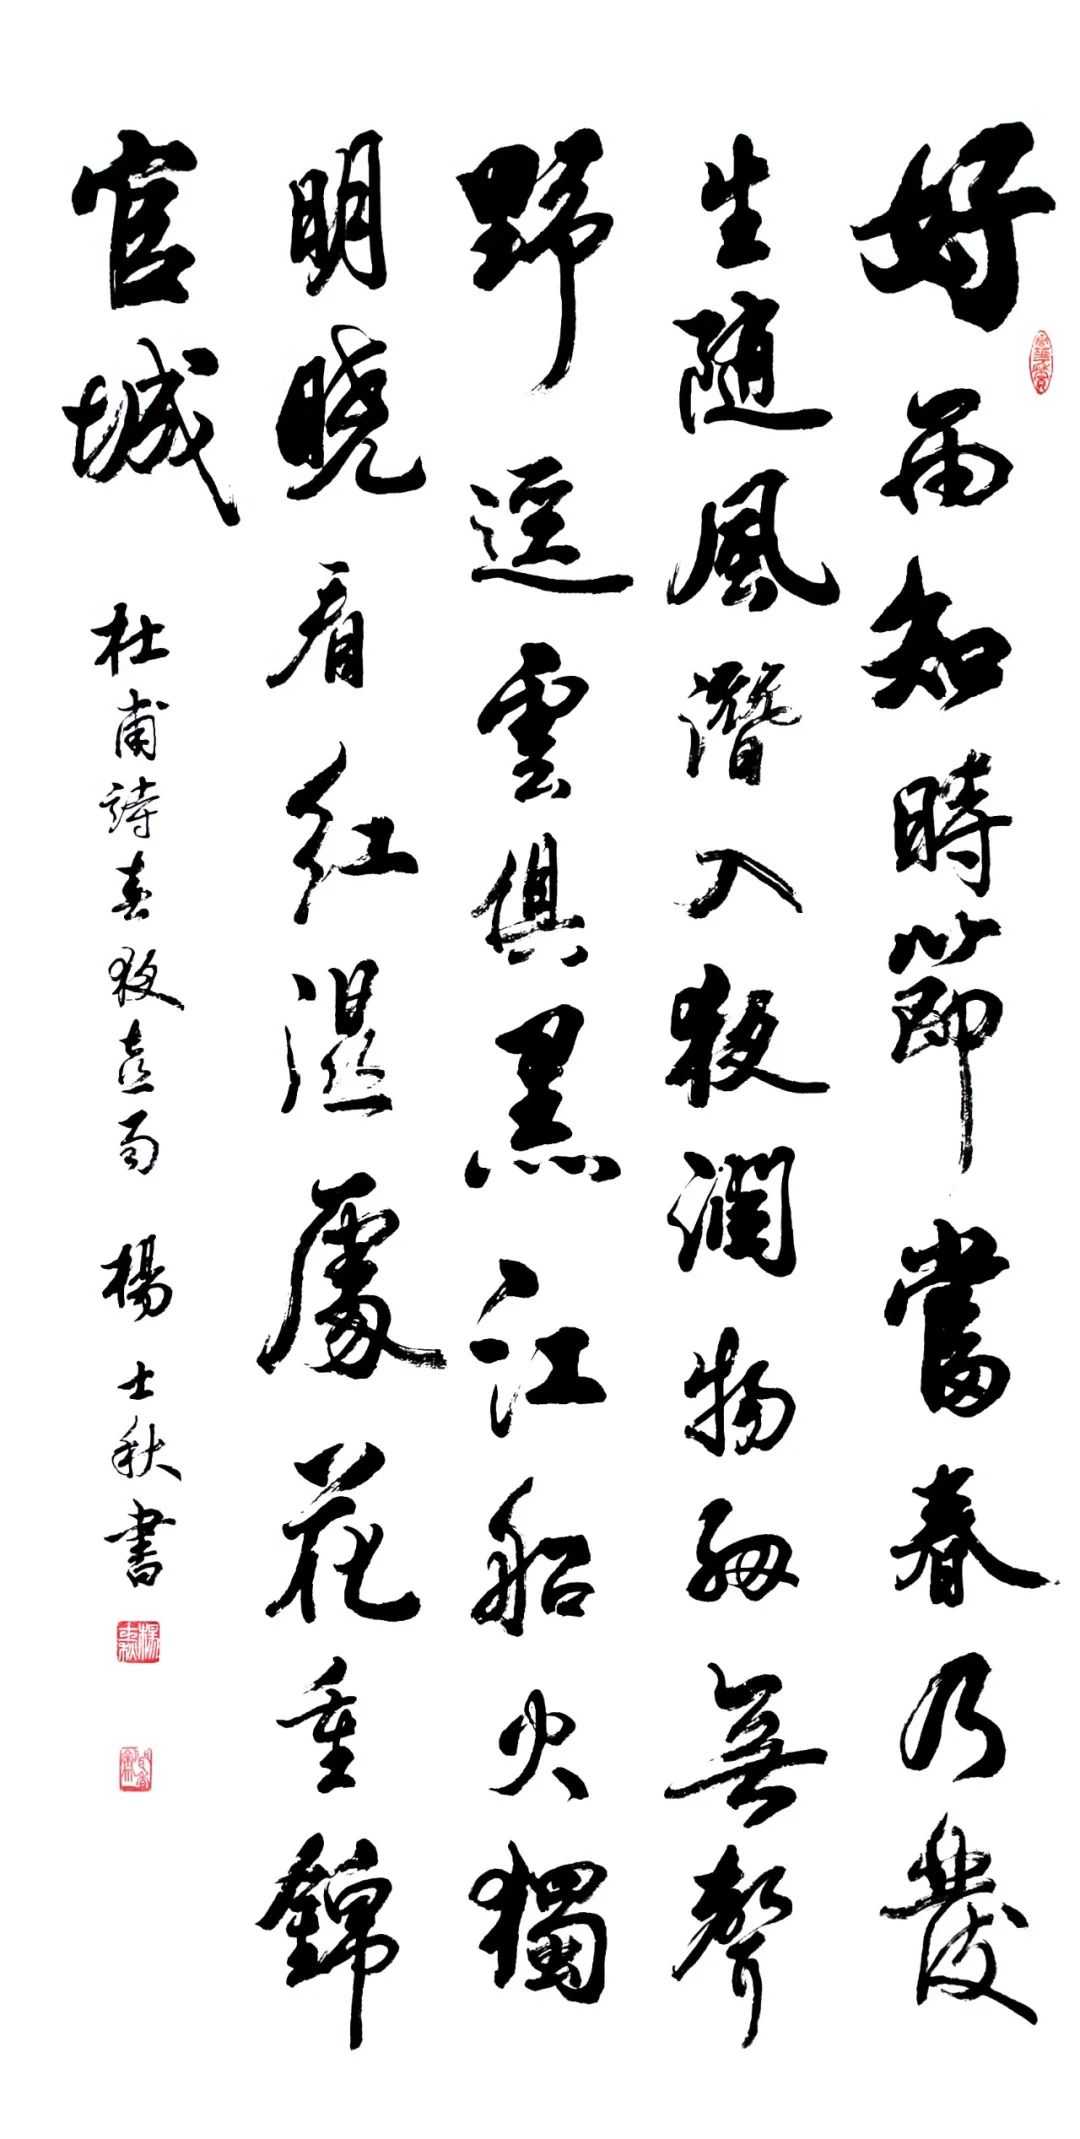 好雨知時節當春乃發
生随風潛入夜潤物細無聲
野逕雲俱黑江船火獨
明曉看红濕處花重錦
官城
杜甫詩春夜喜雨 楊士秋書